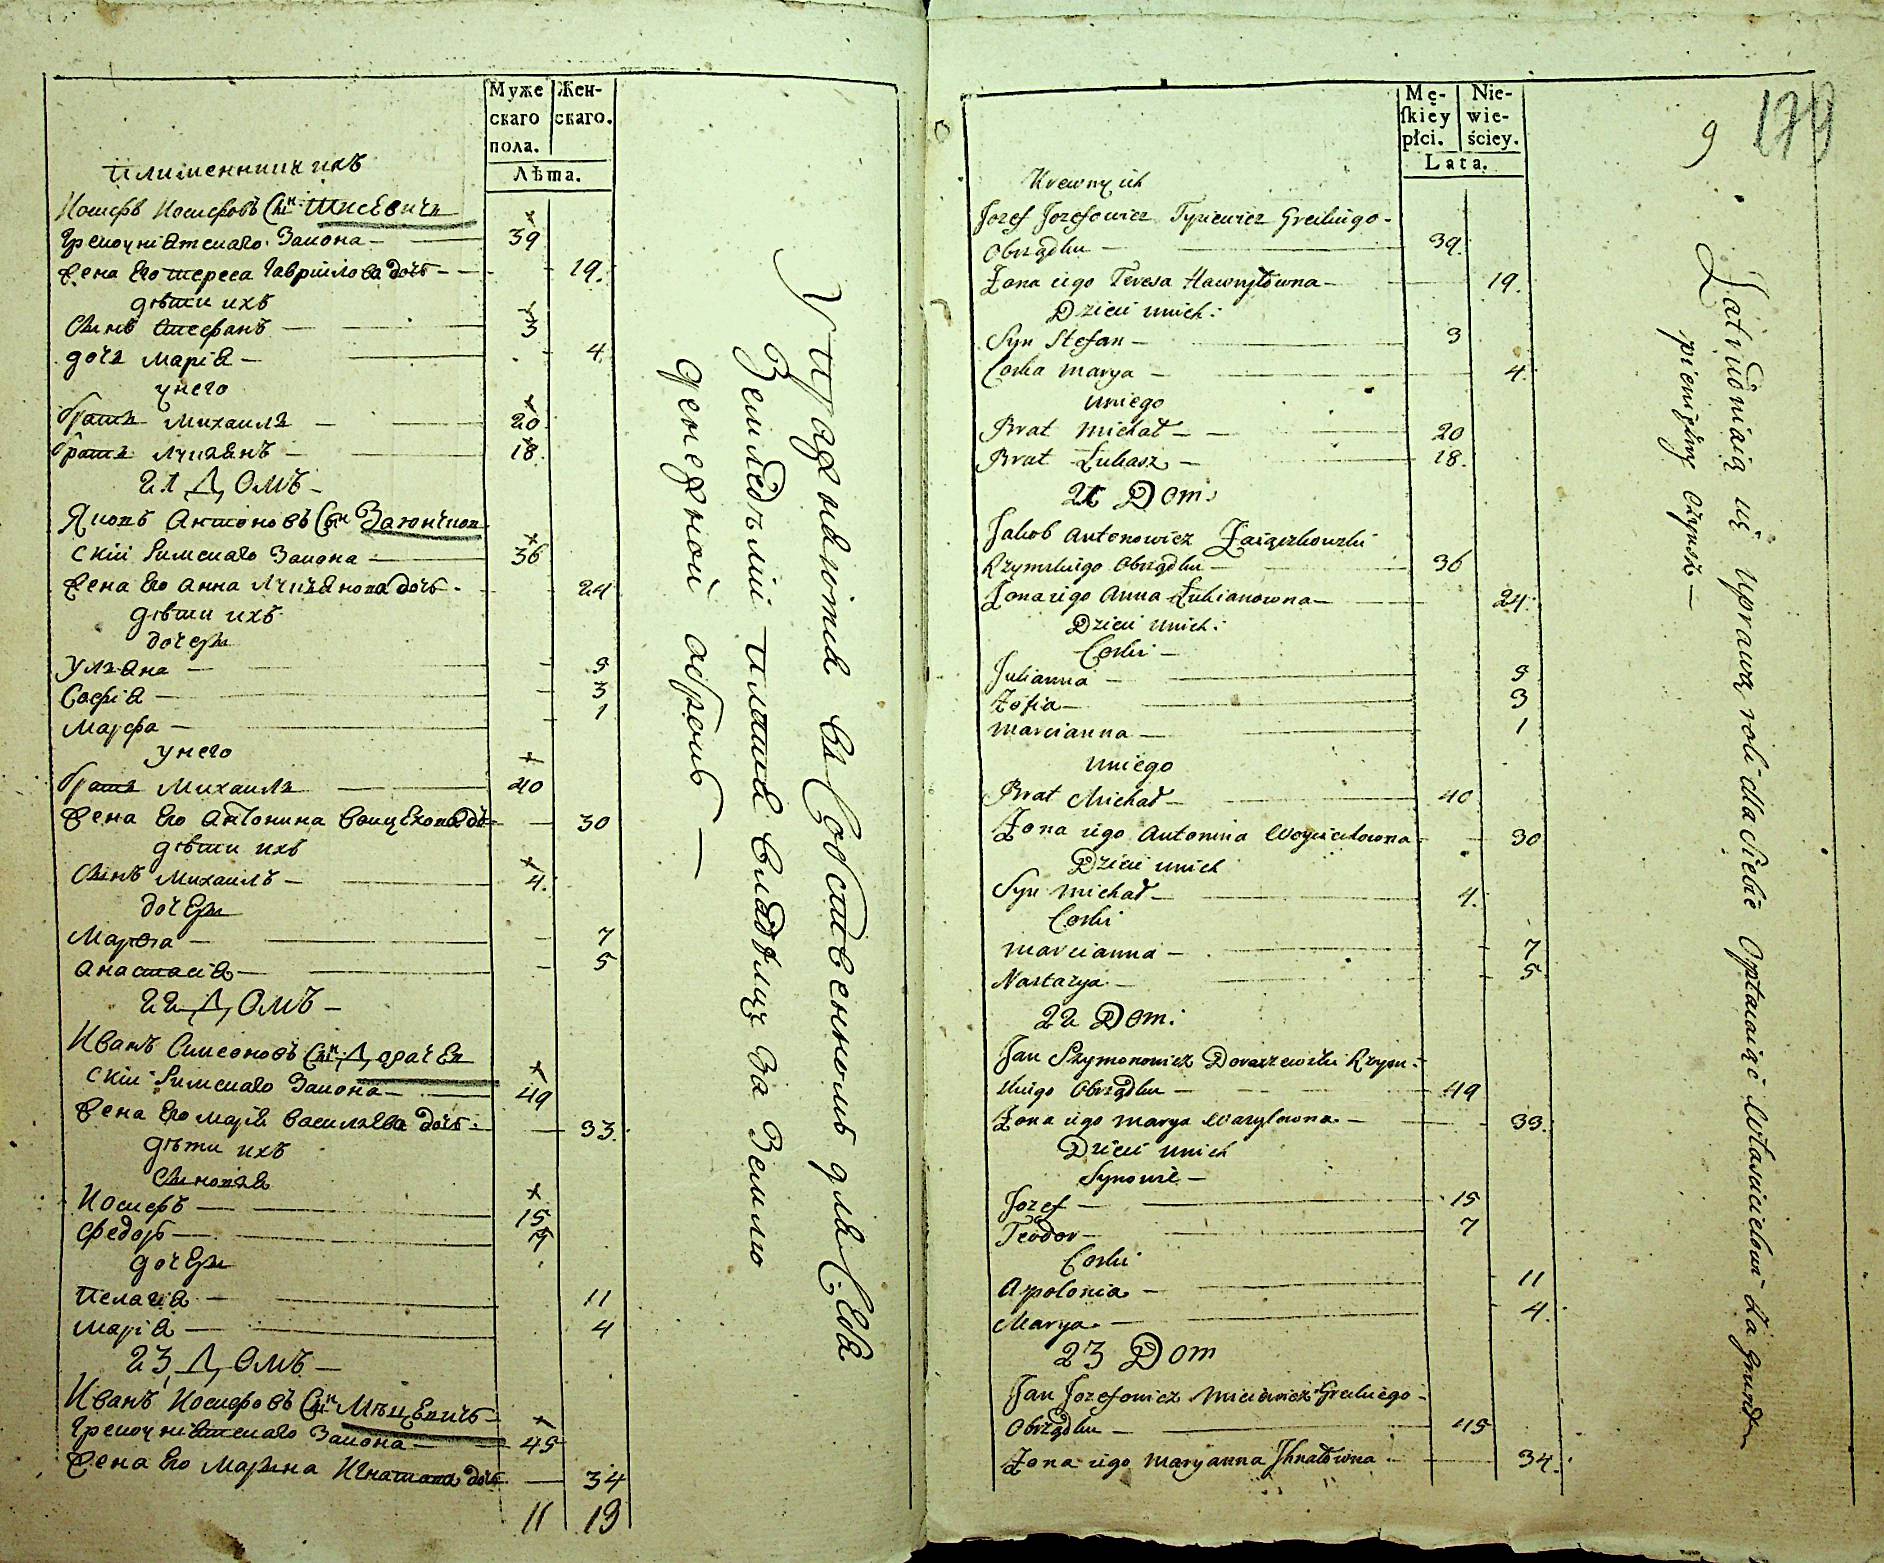 Муже
скаго
пола.
Жен-
скаго.
Лѣта.
Плименники ихъ
Иосифъ Иосифовъ Снъ Тисевичъ
Грекоуніатскаго Закона — 39
Жена Его тереса Гаврилова дочь — 19.
дѣти ихъ
Сынъ Стефанъ — 3
дочь Марія — 4
у него
братъ Михаилъ — 20
братъ Лукаянъ — 18.
21 Домъ —
Якопъ Антоновъ Снъ Заіончков
скій Римскаго Закона — 36
Жена Его Анна Лукьянова дочь — 24
дѣти ихъ
дочери
Ульяна — 9
Софія — 3
Марфа — 1
у него
братъ Михаилъ — 40
Жена Его Антонина Воицехова до — 30
дѣти ихъ
Сынъ Михаилъ — 4.
дочери
Марѳа — 7
Анастасія — 5
22 Домъ —
Иванъ Симоновъ Снъ Дорачев
скій Римскаго Закона — 49
Жена Его Марія Васильева дочь — 33.
дѣти ихъ
Сыновья
Иосифъ — 15
Федоръ — 7
дочери
Пелагія — 11
Марія — 4
23 Домъ —
Иванъ Иосифовъ Снъ Мицевичъ
Грекоуніатскаго Закона — 45
Жена Его Марьяна Игнатова дочь — 34
11 19
Упражняются въ Собственномъ для Себя
Земледѣліи Платя Владѣлцу За Землю
денежной оброкъ —
179
9
Mę-
ſkiey
płci.
Nie-
wie-
ściey.
Lata.
Krewny ich
Jozef Jozefowicz Tysiewicz Greckiego
Obrządku — 39.
Żona iego Teresa Hawryłowna — 19.
Dzieci u nich:
Syn Stefan — 3
Corka Marya — 4.
u niego
Brat Michał — 20
Brat Łukasz — 18.
21 Dom:
Jakob Antonowicz Zaiączkowski
Rzymskiego Obrządku — 36
Żona iego Anna Łukianowna — 24.
Dzieci u nich:
Corki —
Julianna — 9
Zofia — 3
Marcianna — 1
u niego
Brat Michał — 40
Żona iego Antonina Woyciechowna — 30
Dzieci u nich
Syn Michał — 4.
Corki
Marcianna — 7
Nastazya — 5
22 Dom:
Jan Szymonowicz Doraszewski Rzym:
skiego Obrządku — 49
Żona iego Marya Wasylowna — 33.
Dzieci u nich
Synowie —
Jozef — 15
Teodor — 7
Corki
Apolonia — 11
Marya — 4.
23 Dom
Jan Jozefowicz Miciewicz Greckiego
Obrządku — 45
Żona iego Maryanna Jhnatowna — 34.
Zatrudniaią się uprawą roli dla Siebie Opłacaiąc Właścicielowi za grunt
pieniężny Czynsz —